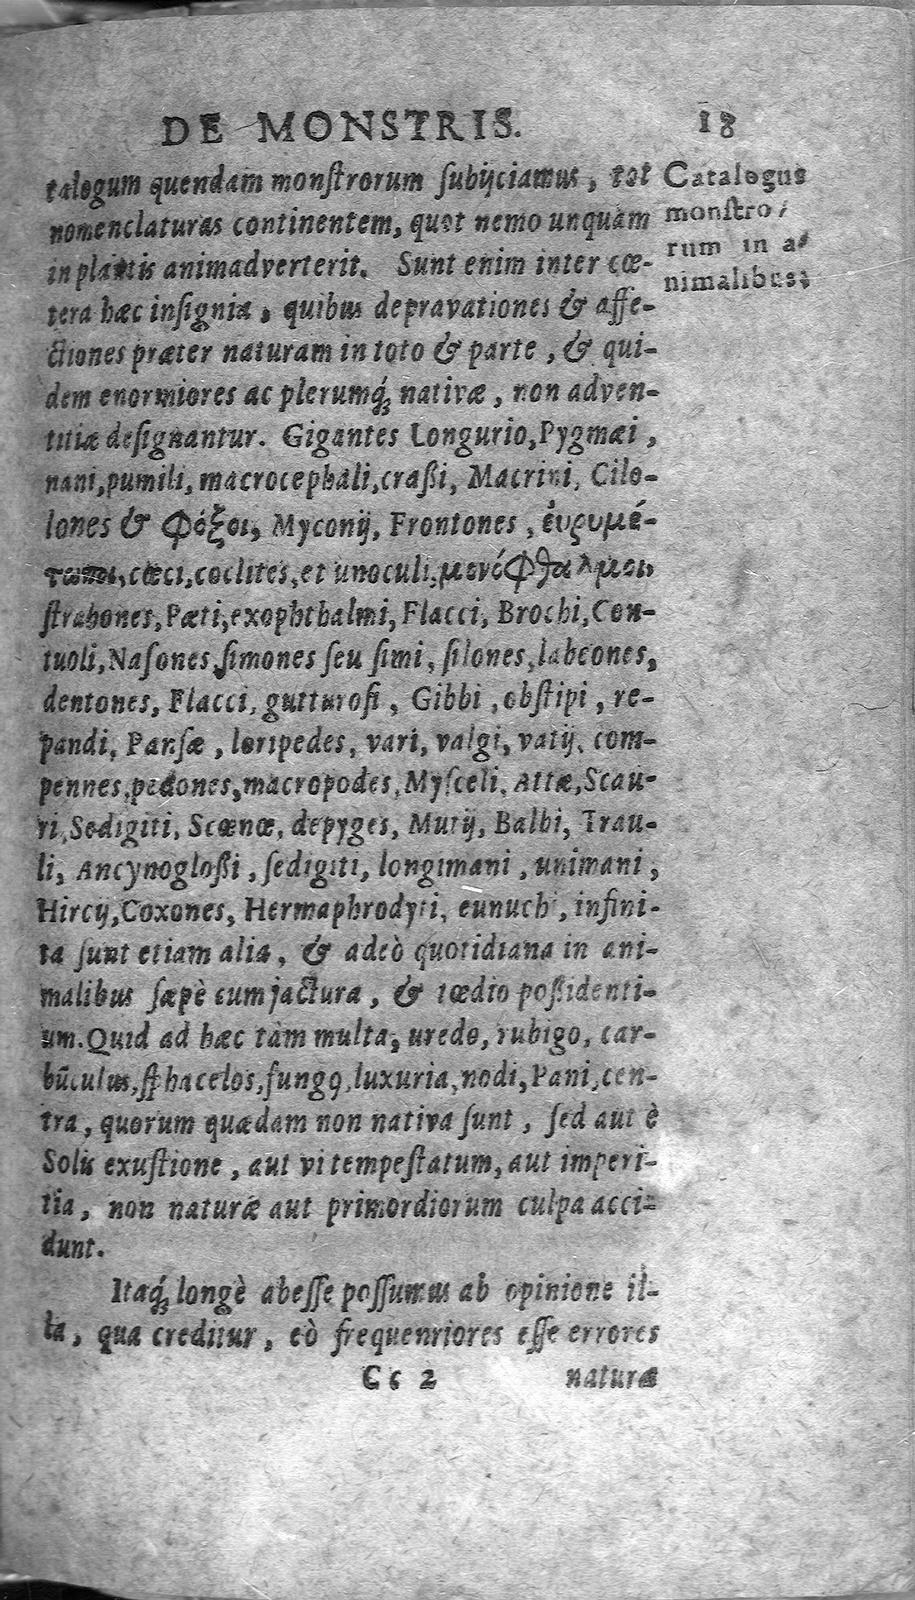 DE MONSTRIS. 18
talogum quendam monſtrorum ſubijciamus, tot
nomenclaturas continentem, quot nemo unquam
in plantis animadverterit. Sunt enim inter cœ-
tera hæc inſignia, quibus depravationes & affe-
ctiones præter naturam in toto & parte, & qui-
dem enormiores ac plerumq́; nativæ, non adven-
titiæ deſignantur. Gigantes Longurio, Pygmæi,
nani, pumili, macrocephali, craßi, Macrini, Cilo-
lones & Φόξοι, Myconij, Frontones, ἐυρυμέ-
τωποι, cœci, coclites, et unoculi, μονόφθαλμοι,
ſtrabones, Pæti, exophthalmi, Flacci, Brochi, Con-
tuoli, Naſones, ſimones ſeu ſimi, ſilones, labeones,
dentones, Flacci, gutturoſi, Gibbi, obſtipi, re-
pandi, Panſæ, loripedes, vari, valgi, vatij, com-
pennes, pedones, macropodes, Myſceli, Attæ, Scau-
ri, Sedigiti, Scœnœ, depyges, Mutij, Balbi, Trau-
li, Ancynogloßi, ſedigiti, longimani, unimani,
Hircij, Coxones, Hermaphrodyti, eunuchi, infini-
ta ſunt etiam alia, & adeò quotidiana in ani-
malibus ſæpè cum jactura, & tœdio poßidenti-
um. Quid ad hæc tàm multa, uredo, rubigo, car-
būculus, ſphacelos, fungꝯ, luxuria, nodi, Pani, cen-
tra, quorum quædam non nativa ſunt, ſed aut è
Solis exuſtione, aut vi tempeſtatum, aut imperi-
tia, non naturæ aut primordiorum culpa acci-
dunt.
Itaq́; longè abeſſe poſſumus ab opinione il-
la, qua creditur, eò frequenriores eſſe errores
Cc 2 naturæ
Catalogus
monſtro/
rum in a/
nimalibus.